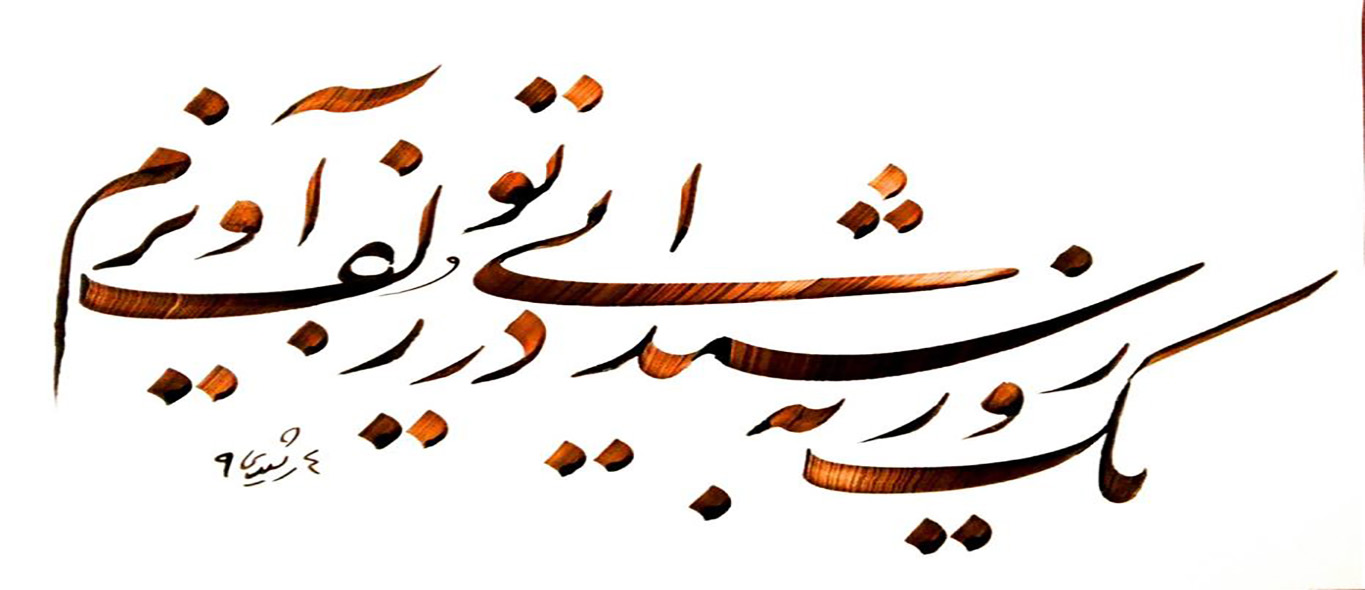 یک روز به شیدایی در زلف تو آویزم
۴ رشیدی ۹